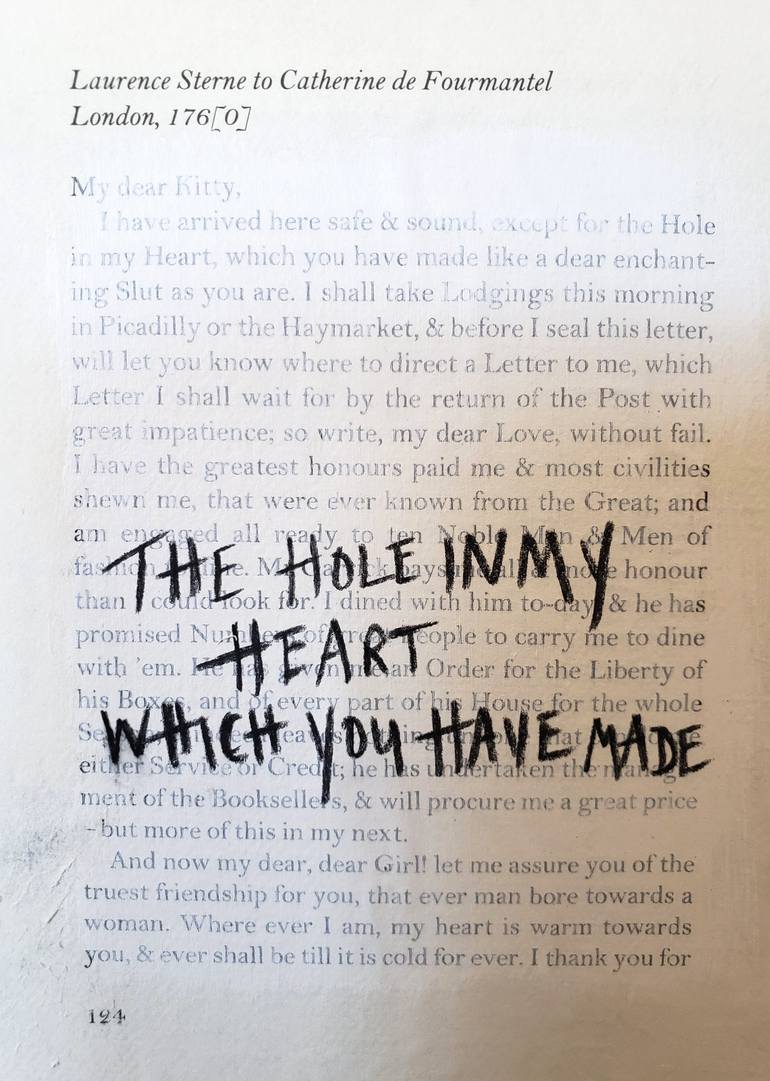 Laurence Sterne to Catherine de Fourmantel
London, 176[0]
My dear Kitty,
I have arrived here safe & sound, except for the Hole
in my Heart, which you have made like a dear enchant-
ing Slut as you are. I shall take Lodgings this morning
in Picadilly or the Haymarket, & before I seal this letter,
will let you know where to direct a Letter to me, which
Letter I shall wait for by the return of the Post with
great impatience; so write, my dear Love, without fail.
I have the greatest honours paid me & most civilities
shewn me, that were ever known from the Great; and
am engaged all ready to ten Noble Men & Men of
fashion to dine. Mr pays me all & more honour
than I could look for. I dined with him to-day, & he has
promised Numbers of great People to carry me to dine
with 'em. He has given me an Order for the Liberty of
his Boxes, and of every part of his House for the whole
THE HOLE IN MY
HEART
WHICH YOU HAVE MADE
either Service or Credit; he has undertaken the manage-
ment of the Booksellers, & will procure me a great price
– but more of this in my next.
And now my dear, dear Girl! let me assure you of the
truest friendship for you, that ever man bore towards a
woman. Where ever I am, my heart is warm towards
you, & ever shall be till it is cold for ever. I thank you for
124